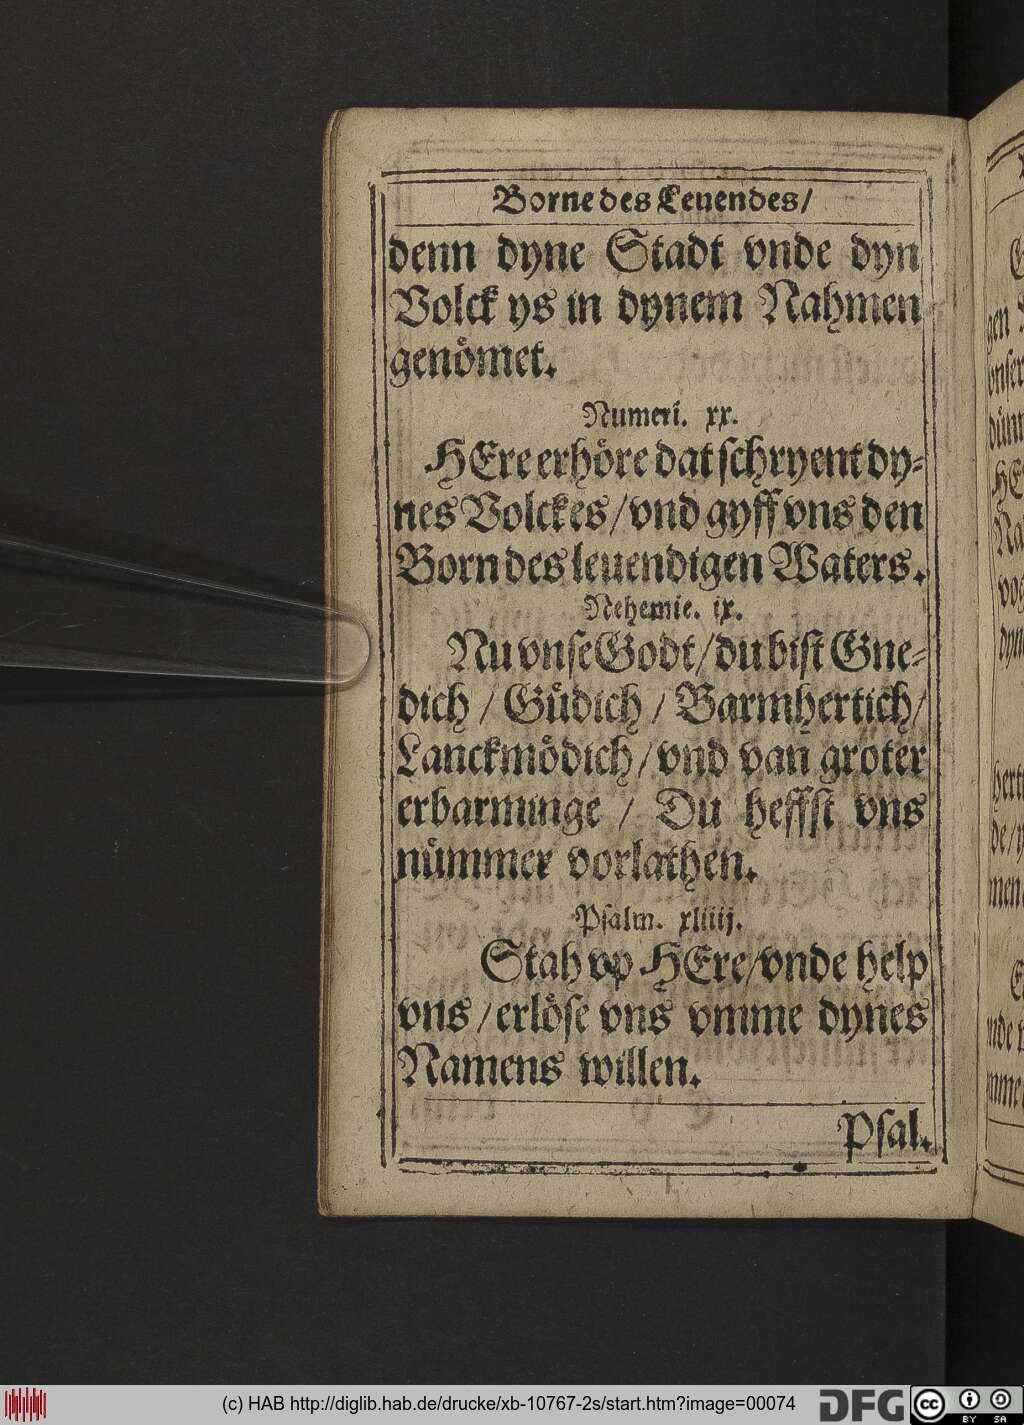 Borne des Leuendes/
denn dyne Stadt vnde dyn
Volck ys in dynem Nahmen
genömet.
Numeri. xx.
HEre erhöre dat ſchryent dy⸗
nes Volckes/vnd gyff vns den
Born des leuendigen Waters.
Nehemie. ix.
Nu vnſe Godt/du biſt Gne⸗
dich / Güdich / Barmhertich/
Lanckmödich/vnd van groter
erbarminge / Du heffſt vns
nümmer vorlathen.
Pſalm. xliiij.
Stah vp HEre/vnde help
vns/erlöſe vns vmme dynes
Namens willen.
Pſal.
(c) HAB http://diglib.hab.de/drucke/xb-10767-2s/start.htm?image=00074
DFG
cc BY SA